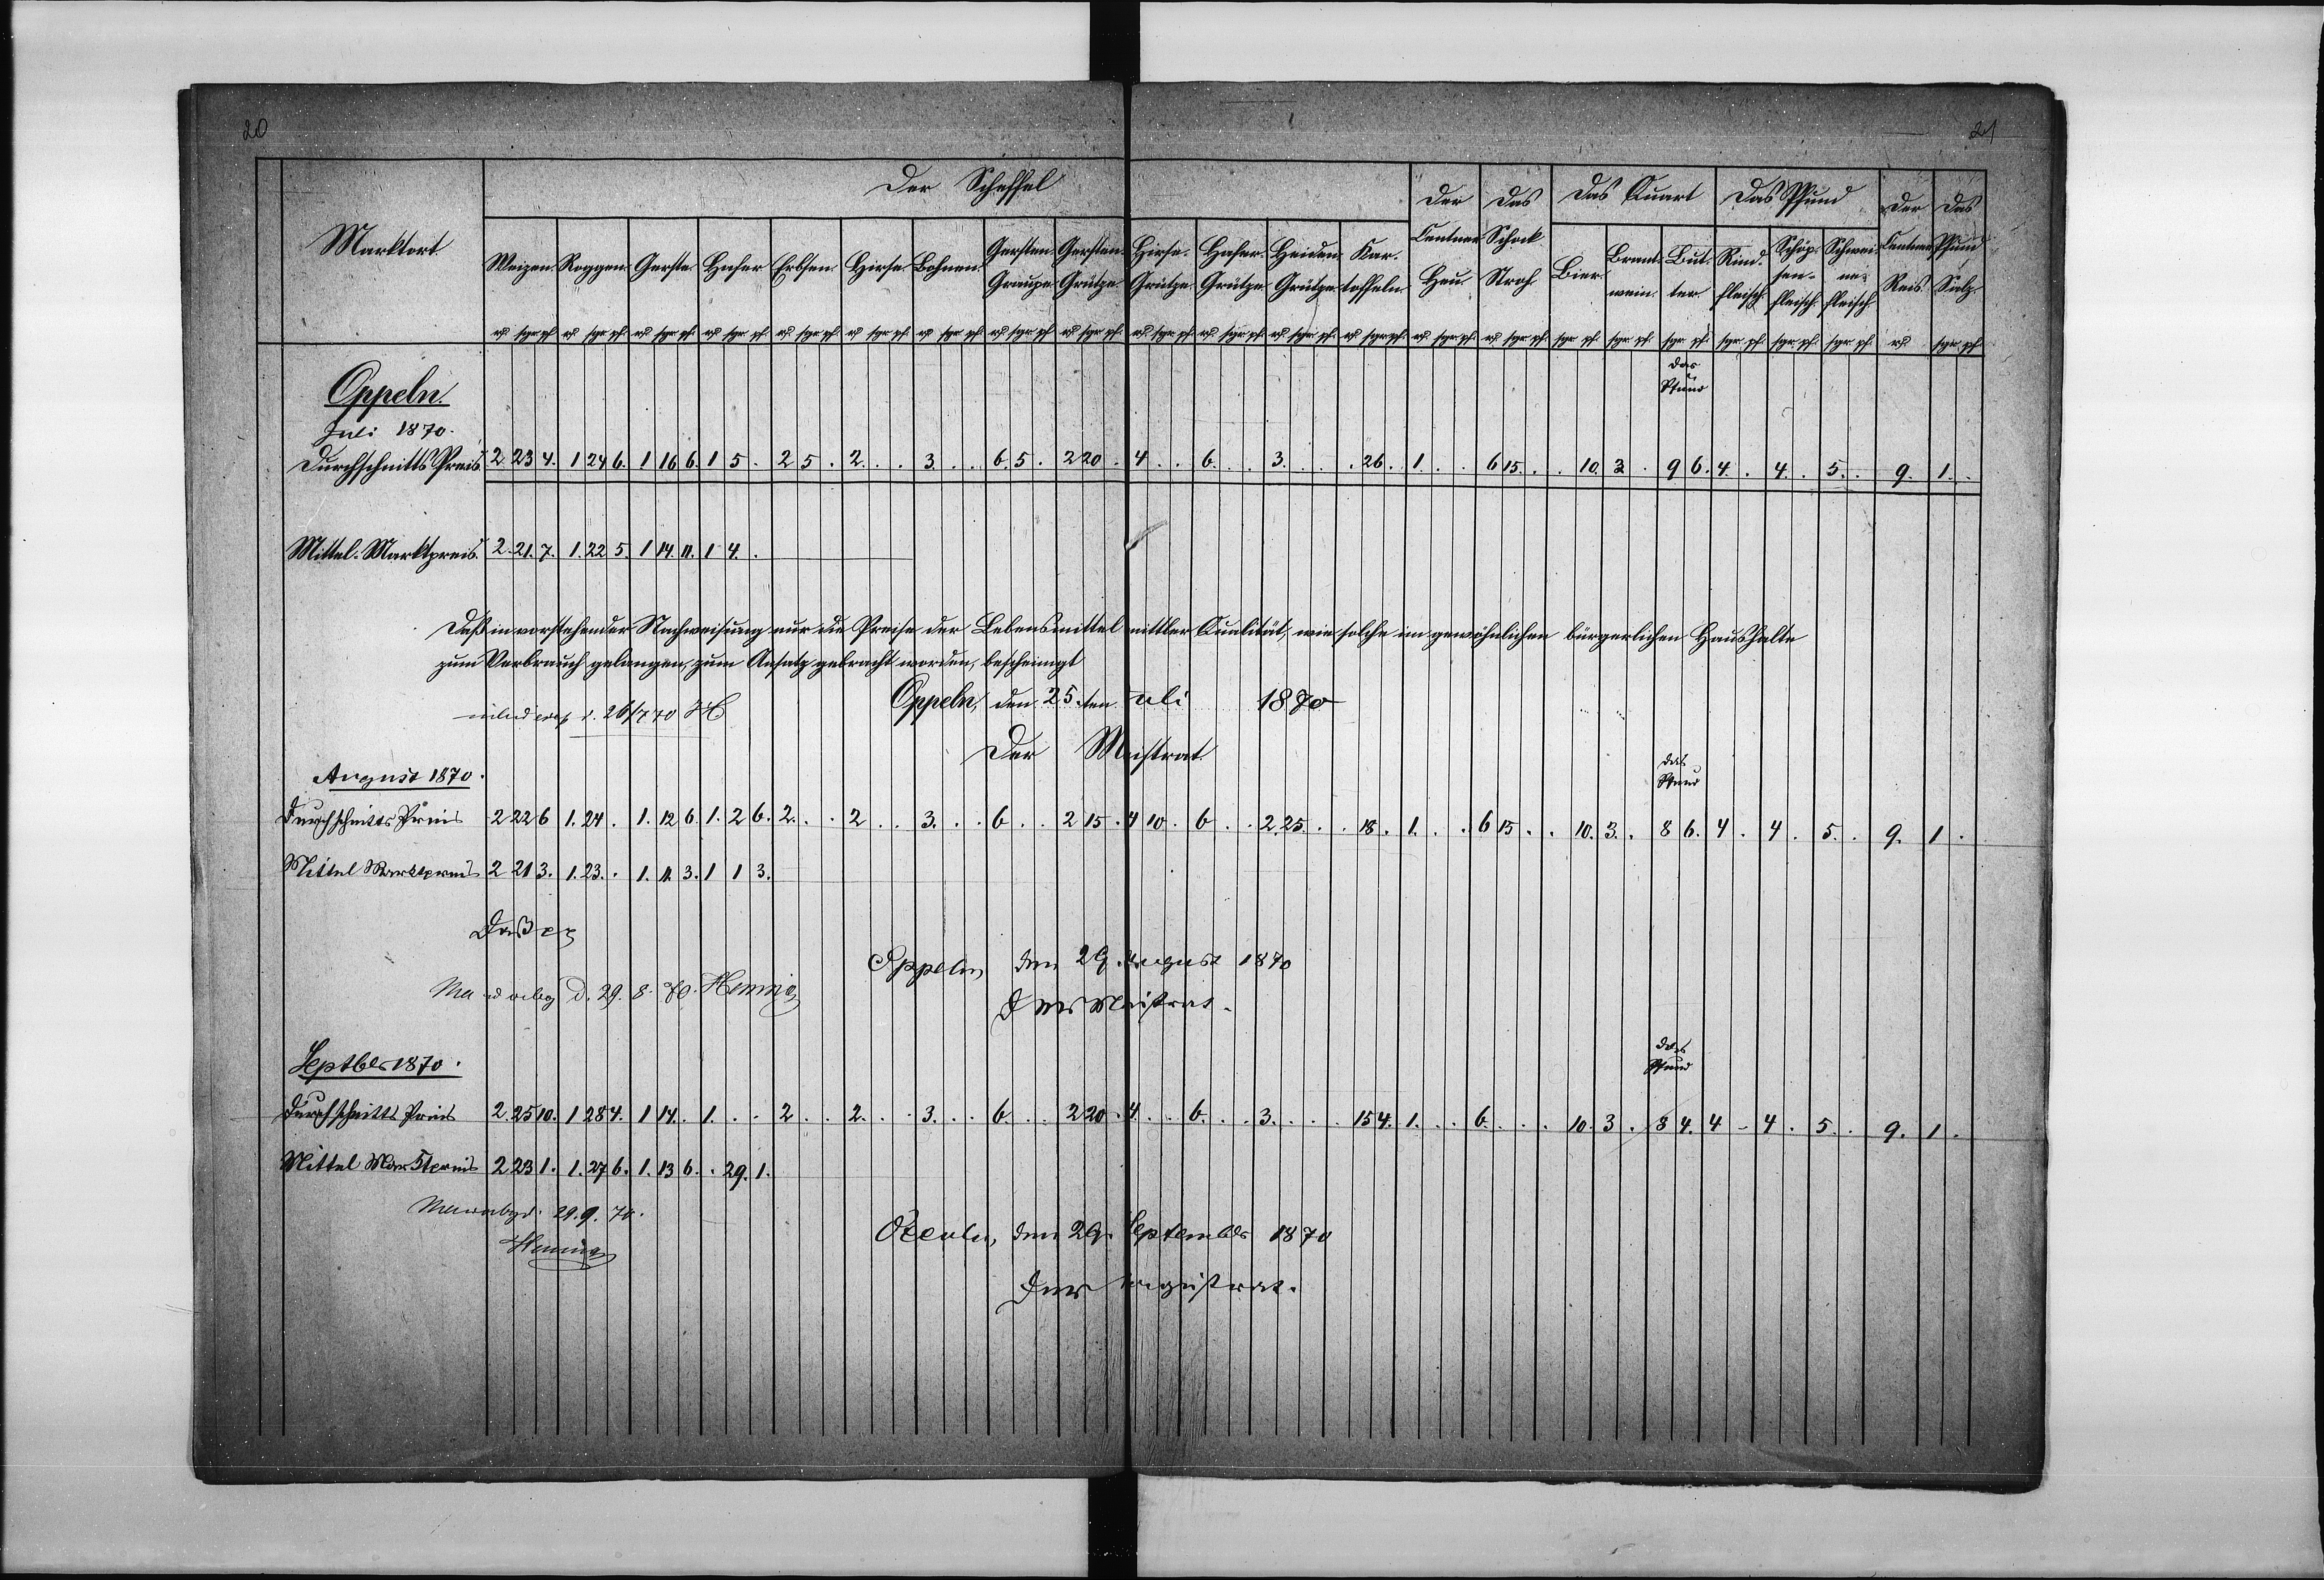 20
21
Marktort.
Der Scheffel
Der
Das
Das Quart
Das Pfund
Der
Das
Weizen. Roggen. Gerste. Hafer. Erbsen. Hirse. Bohnen. Gersten Graupe Gersten Grütze Hirse. Grütze. Hafer. Grütze Heiden Grütze. Kar. toffeln.
Centner Heu.
Schock Stroh
Bier. Brant. wein. But. ter.
Rind. fleisch. Schöp. sen. fleisch. Schwei. ne. fleisch
Centner Reis.
Pfund Salz.
sgr pf
Oppeln.
Juli 1870.
das Pfund
Durchschnitts Preis. 2 23 4. 1 24 6. 1 16 6. 1 5 . 2 5 . 2 . . 3 . . 6 5 . 2 20 . 4 . . 6 . . 3 . . . 26 . 1 . . 6 15 . . 10. 3 . 9 6. 4 . 4 . 5 . 9. 1 .
Mittel. Marktpreis. 2. 21. 7. 1. 22 5. 1 14. 11. 1 4. .
Daß in vorstehender Nachweisung nur die Preise der Lebensmittel mittler Qualität, wie solche im gewöhnlichen bürgerlichen Haushalte
zum Verbrauch gelangen, zum Ansatz gebracht worden, bescheinigt
Oppeln, den 25.ten uli 1870
d. 26/7 70 H
Der Mistrat.
August 1870.
das Pfund
Durchschnitts Preis 2 22 6 1. 24 . 1. 12 6 1. 2 6. 2 . . 2 . . 3. . . 6 . . 2 15 . 4 10 . 6 . . 2. 25. . . 18 . 1 . . 6 15 . . 10. 3. . 8 6. 4 . 4 . 5 . 9. 1 .
Mittel Marktpreis 2 21 3. 1. 23. . 1. 11. 3. 1 1 3.
Daß pp
Oppeln, den 29. August 1870
d. 29. 8. 70. Hennig
Der Mistrat.
Septbr 1870.
das Pfund
Durchschnitts Preis 2. 25 10. 1 28 4. 1 14. . 1. . . 2 . . 2. . . 3. . . 6. . . 2 20 . 4. . . 6. . . 3. . . . 15 4. 1. . . 6. . . . 10. 3 . 8 4. 4 - 4 . 5 . 9. 1 .
Mittel Marktpreis 2 23 1. 1. 27 6. 1. 13 6. . 29. 1.
29. 9. 70.
Hennig
Oppeln, den 29. September 1870
Der agistrat.